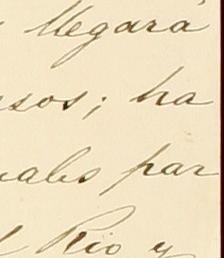 llegará
sos; ha
ales par
l Rio y